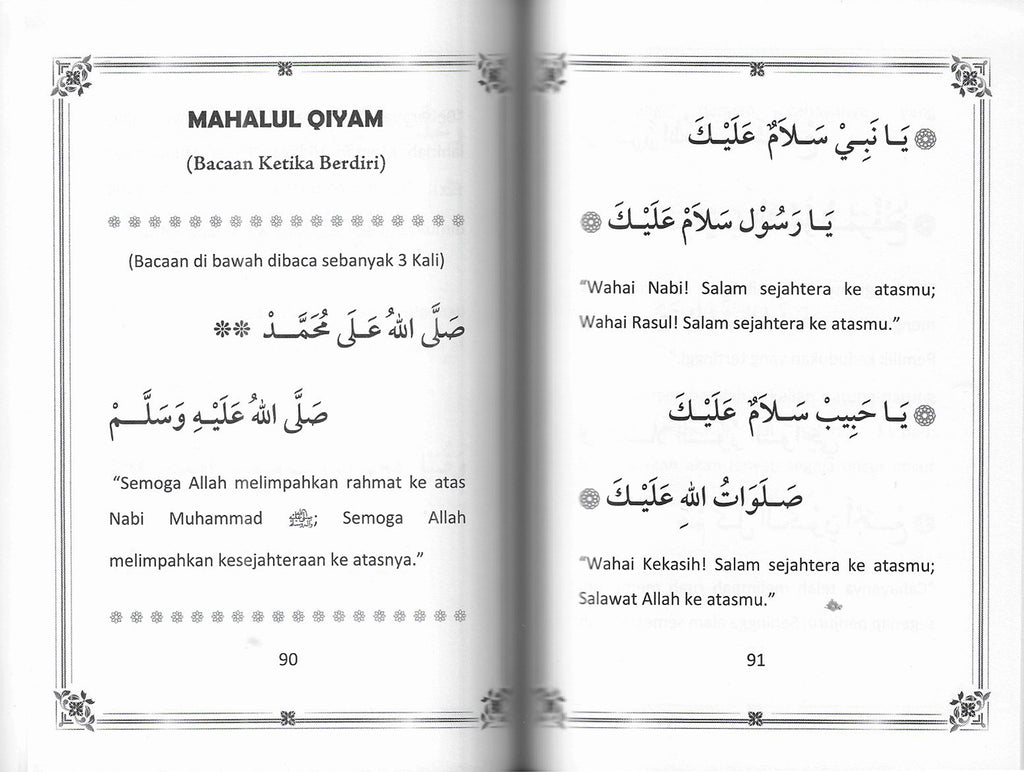 MAHALUL QIYAM
(Bacaan Ketika Berdiri)
(Bacaan di bawah dibaca sebanyak 3 Kali)
صَلَّى اللهُ عَلَى مُحَمَّـــدْ **
صَلَّى اللهُ عَلَيْـهِ وَسَلَّـــمْ
“Semoga Allah melimpahkan rahmat ke atas
Nabi Muhammad ﷺ; Semoga Allah
melimpahkan kesejahteraan ke atasnya.”
90
يَـا نَبِـيْ سَـلاَمٌ عَلَيْـكَ
يَـا رَسُوْل سَلاَمْ عَلَيْـكَ
“Wahai Nabi! Salam sejahtera ke atasmu;
Wahai Rasul! Salam sejahtera ke atasmu.”
يَـا حَبِيبْ سَـلاَمٌ عَلَيْـكَ
صَـلَوَاتُ اللهِ عَلَيْـكَ
“Wahai Kekasih! Salam sejahtera ke atasmu;
Salawat Allah ke atasmu.”
91